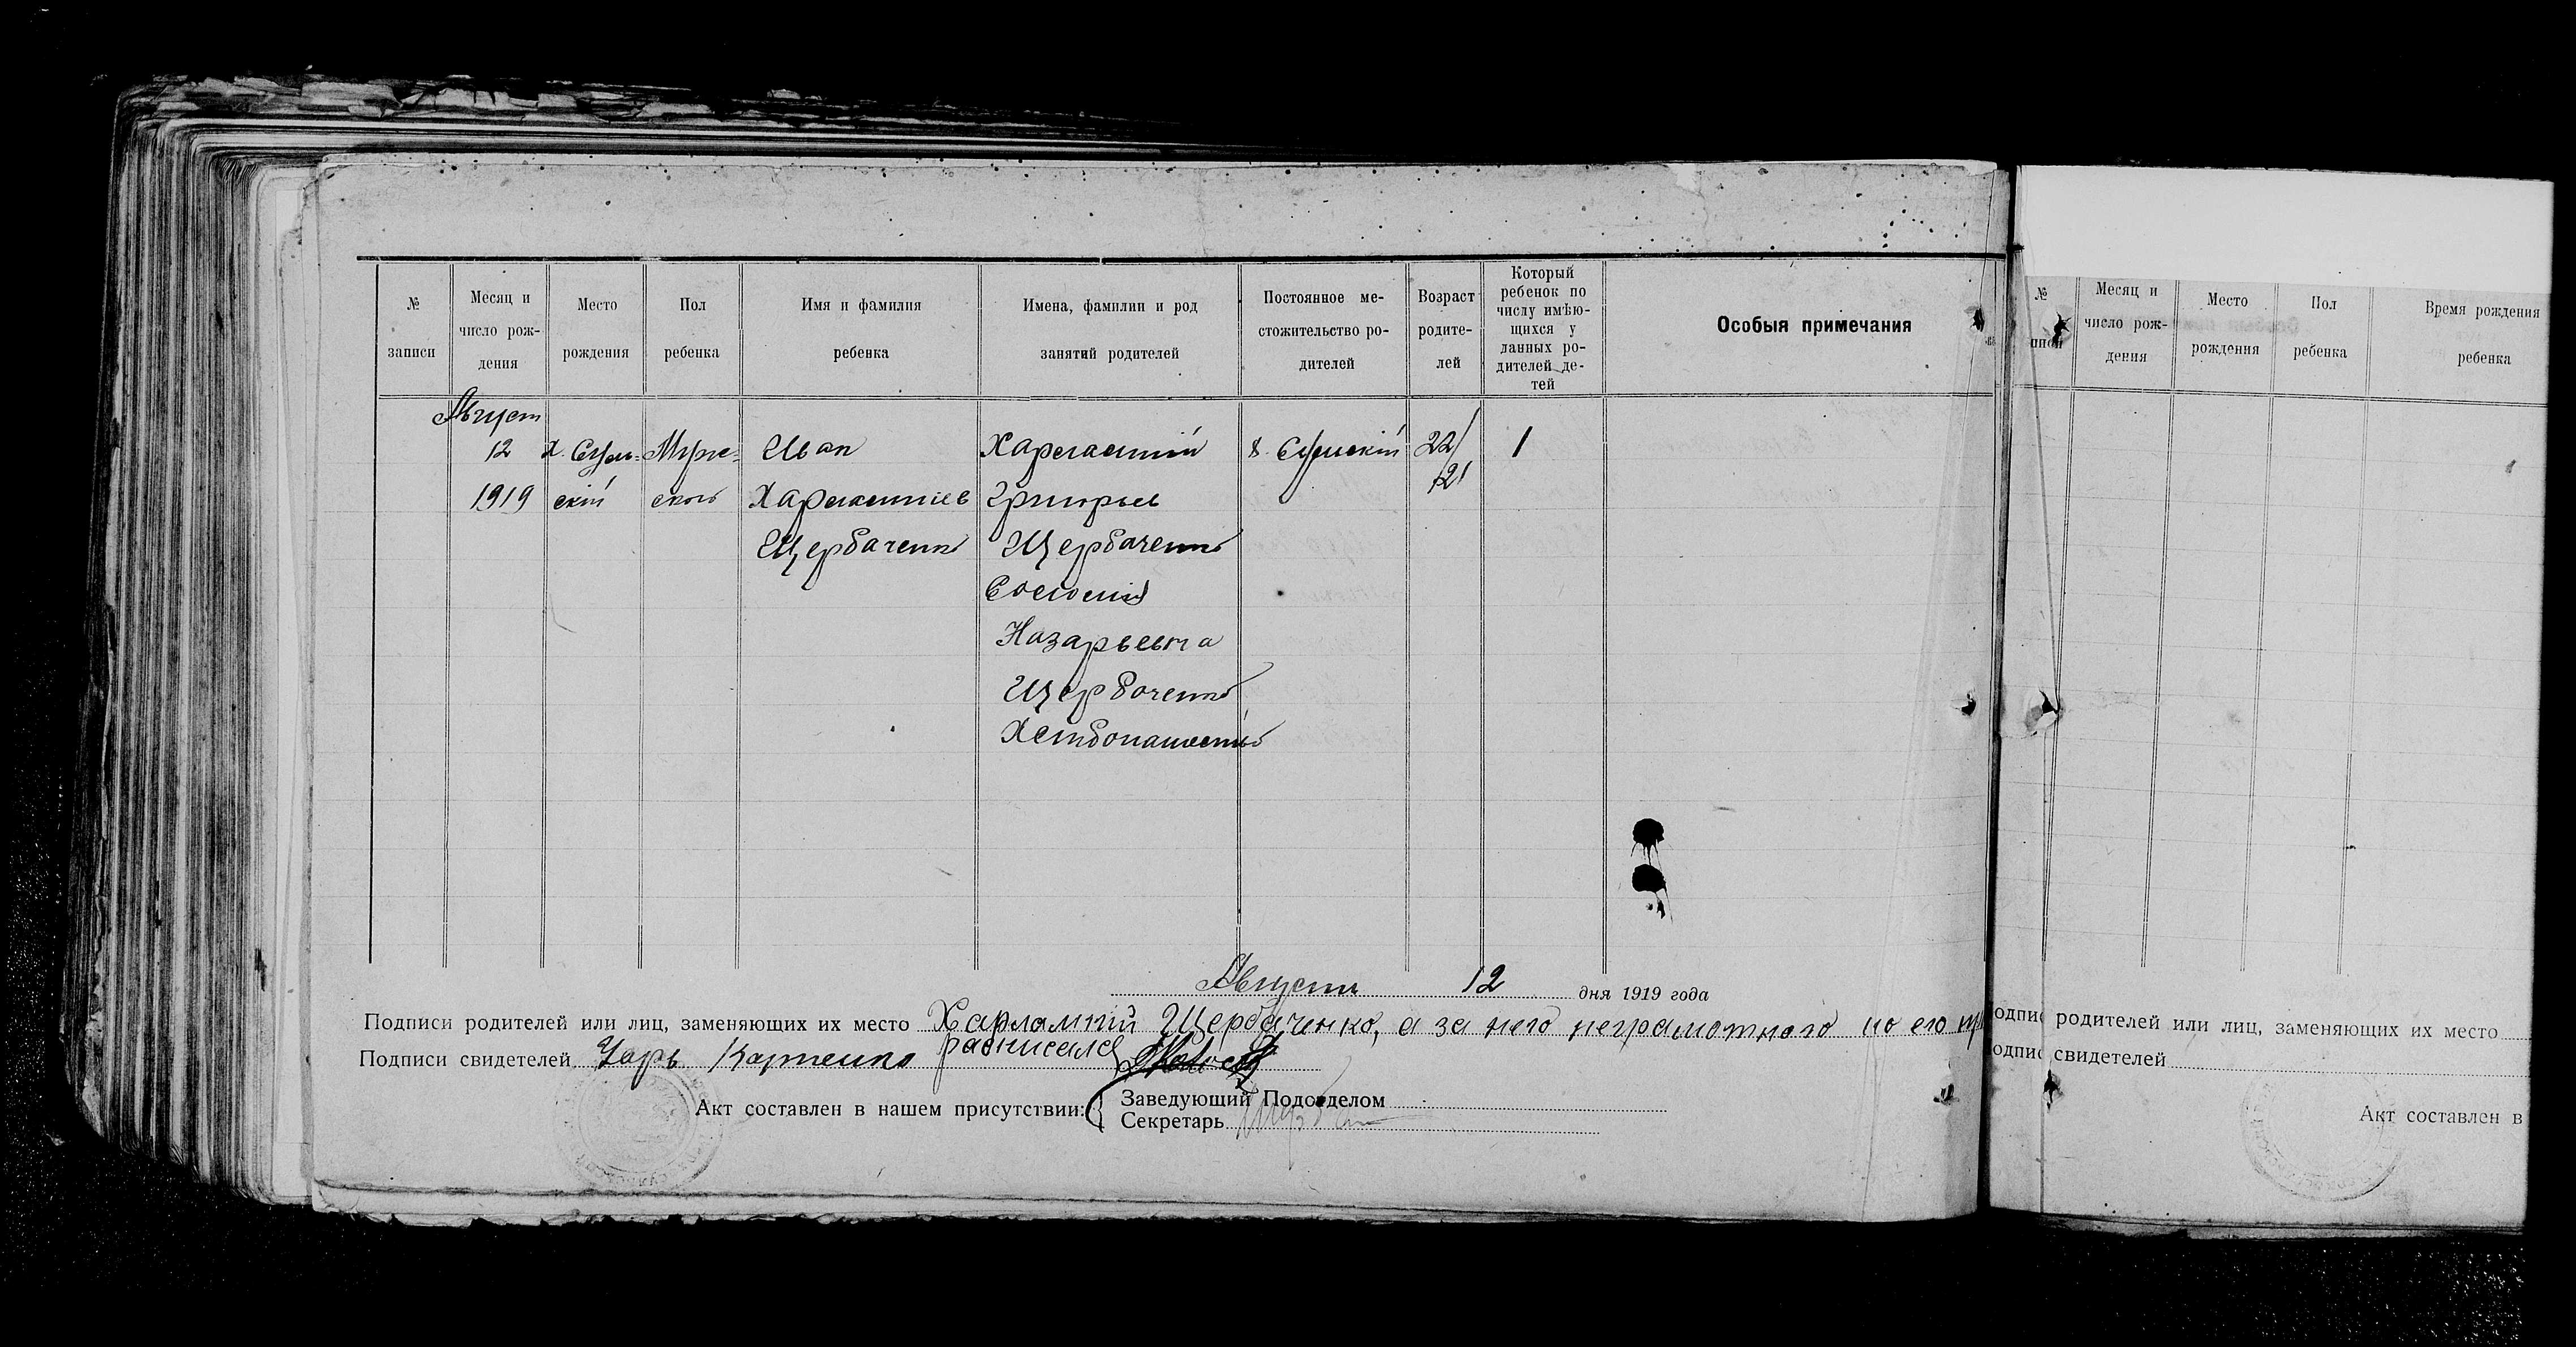 № записи
Месяц и число рождения
Место рождения
Пол ребенка
Имя и фамилия ребенка
Имена, фамилии и род занятий родителей
Постоянное местожительство родителей
Возраст родителей
Который ребенок по числу имѣющихся у данных родителей детей
Особыя примечания
Август
12 х. Сум- Муже- Иван Харлампій х. Сумскій 22/ 1
1919 скій ской Харлампіев Григорьев 21
Щербаченко Щербаченко
Соломія
Назарьевна
Щербаченко
Хлебопашество
Августа 12 дня 1919 года
Подписи родителей или лиц, заменяющих их место Харлампий Щербаченко, а за него неграмотного по его
расписался
Подписи свидетелей Карпенко
Акт составлен в нашем присутствии:
Заведующий Подотделом
Секретарь
№
Месяц и число рождения
Место рождения
Пол ребенка
Время рождения ребенка
родителей или лиц, заменяющих их место
свидетелей
Акт составлен в